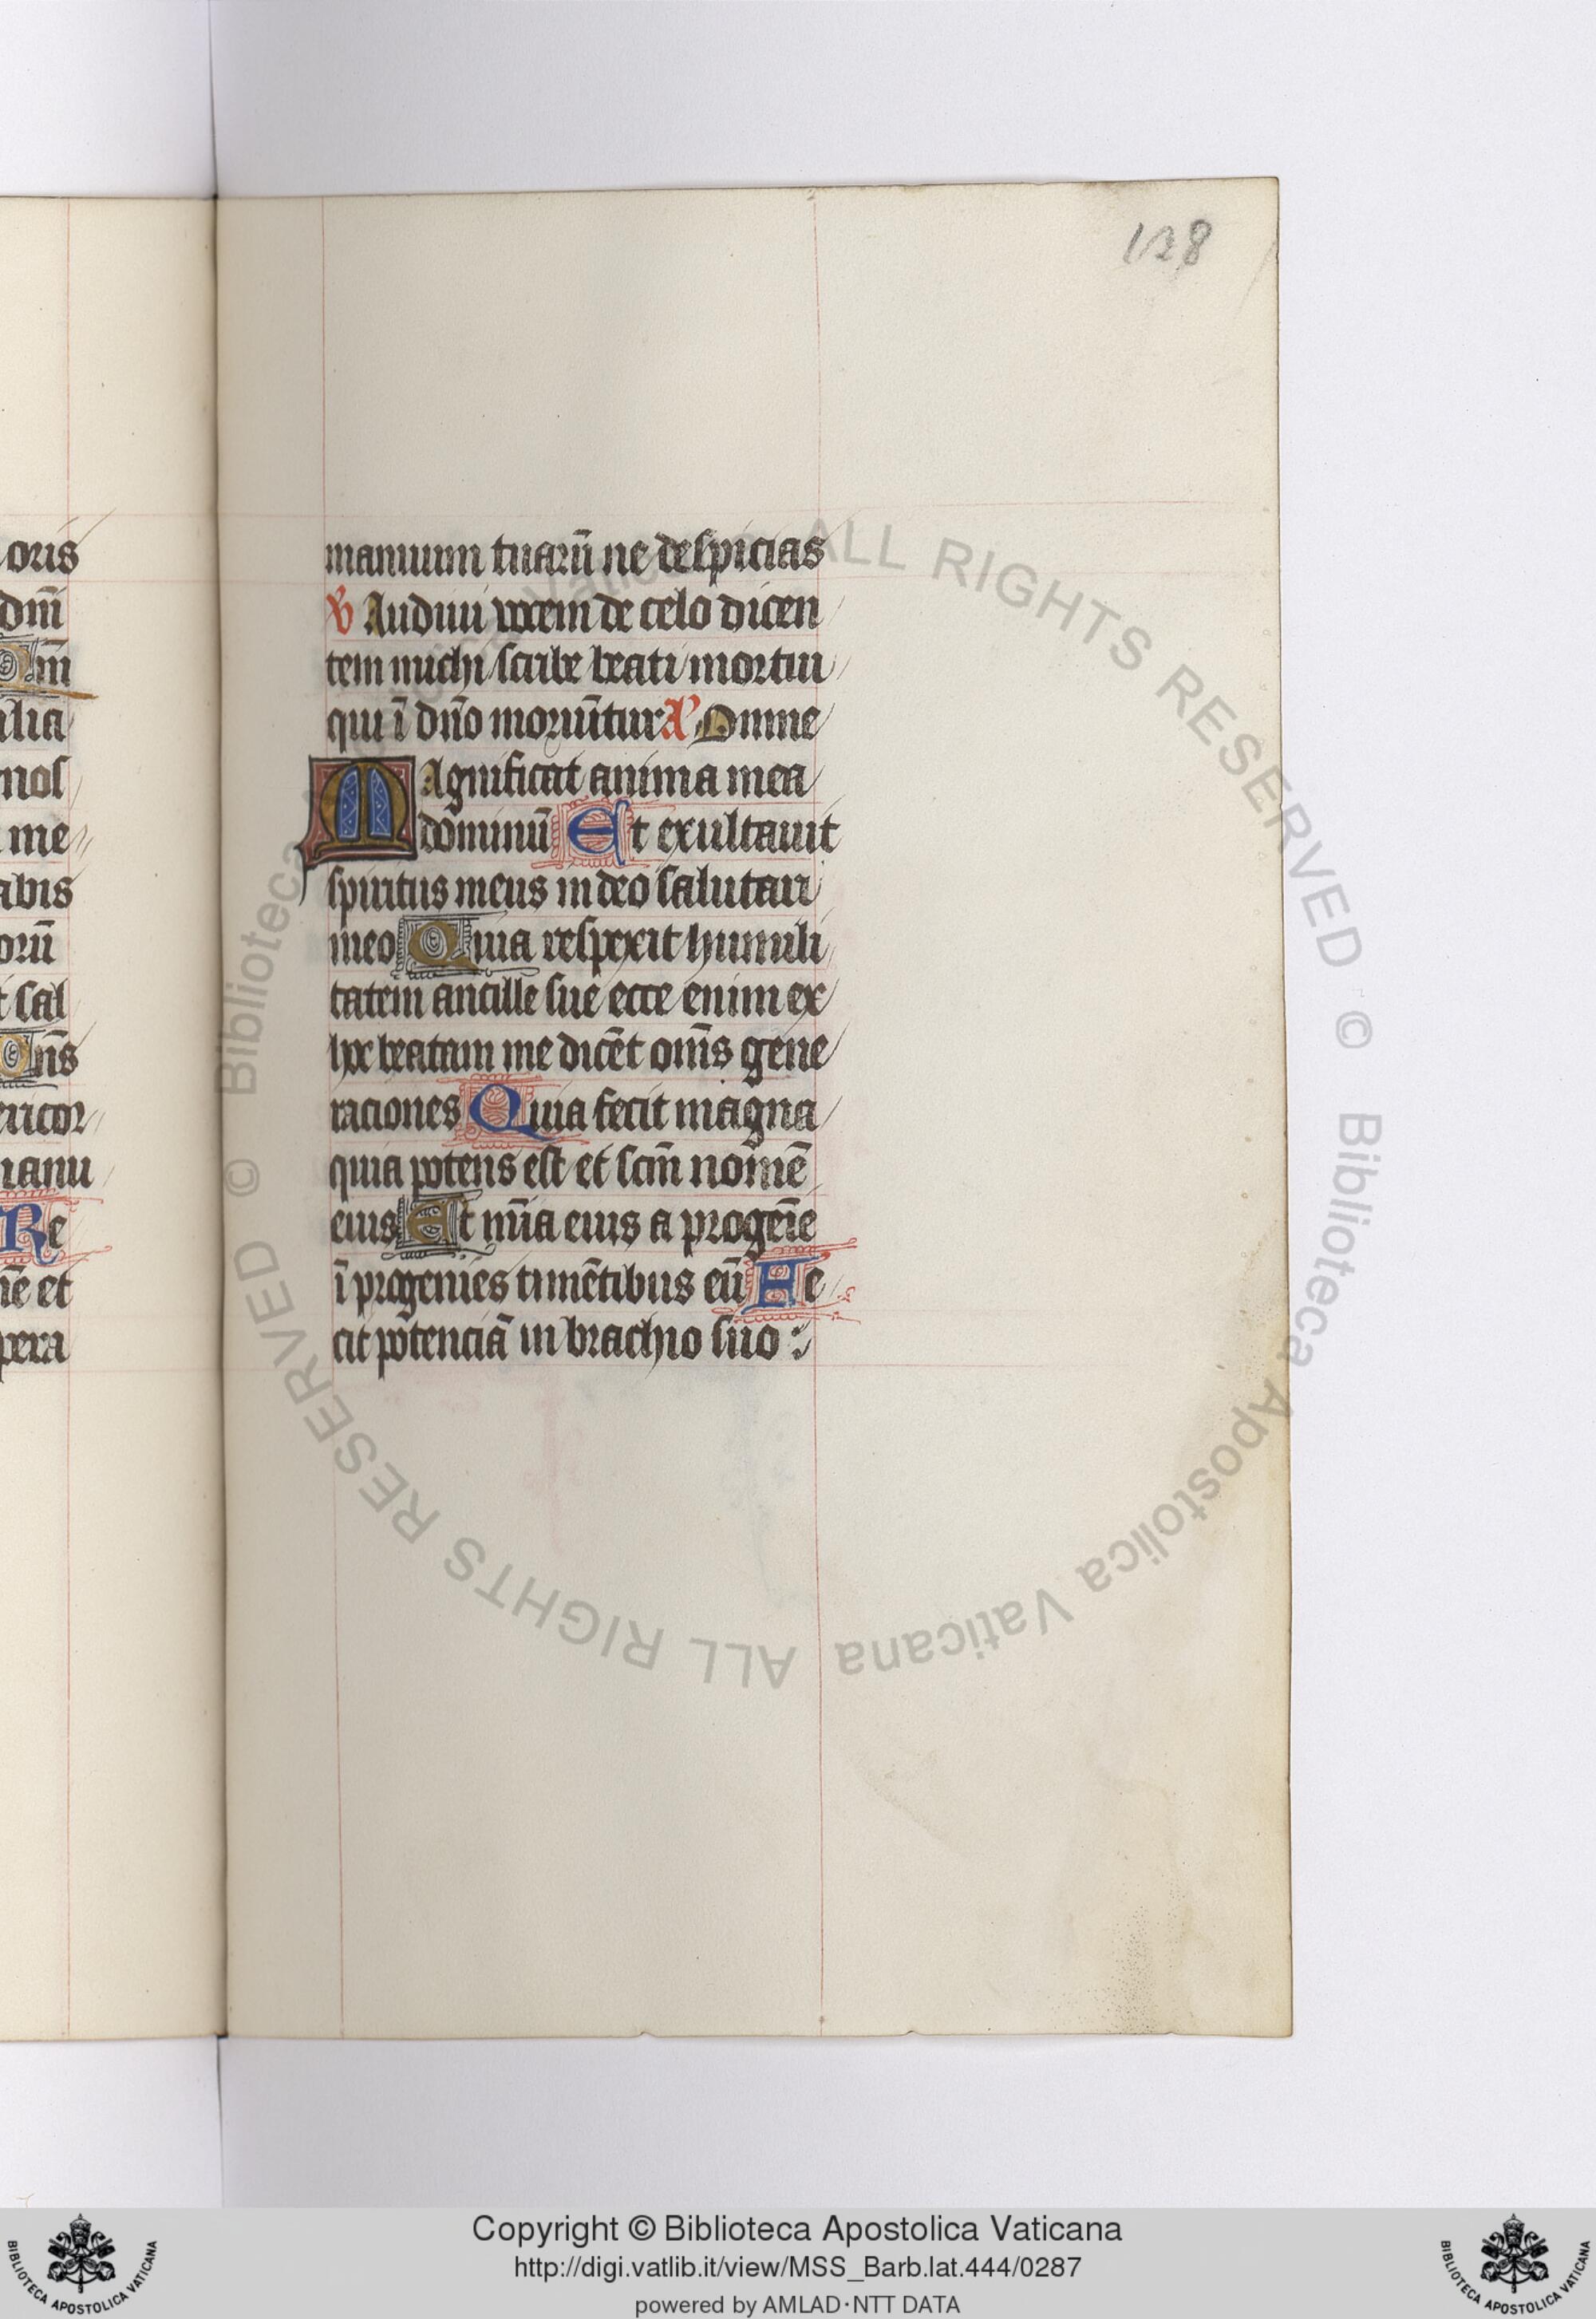 oris
dm̄
Om̄
alia
nos
me
abis
orū
t sal
Dn̄s
ericor
manu
Re
nē et
pera
128
manuum tuarū ne despicias
V Audiui vocem de celo dicen
tem michi scribe beati mortui
qui ī dn̄o moriūtur A Omne
Magnificat anima mea
dominū Et exultauit
spiritus meus in deo salutari
meo Quia respexit humili
tatem ancille sue ecce enim ex
hoc beatam me dicēt om̄s gene
raciones Quia fecit magna
quia potens est et scm̄ nomē
eius Et mīa eius a progenīe
ī progenies timētibus eū Fe
cit potenciā in brachio suo
© Biblioteca Apostolica Vaticana ALL RIGHTS RESERVED
© Biblioteca Apostolica Vaticana ALL RIGHTS RESERVED
Copyright © Biblioteca Apostolica Vaticana
http://digi.vatlib.it/view/MSS_Barb.lat.444/0287
powered by AMLAD·NTT DATA
BIBLIOTECA APOSTOLICA VATICANA
BIBLIOTECA APOSTOLICA VATICANA